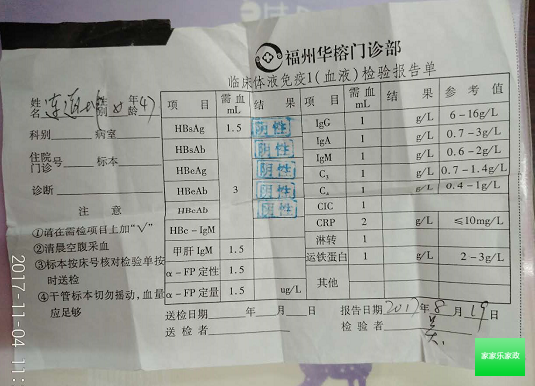 福州华榕门诊部
临床体液免疫1(血液)检验报告单
姓名 性别 女 年龄 47
科别 病室
住院门诊号 标本
诊断
注 意
①请在需检项目上加“√”
②清晨空腹采血
③标本按床号核对检验单按时送检
④干管标本切勿摇动，血量应足够
项 目 需血mL 结 果 项 目 需血mL 结 果 参 考 值
HBsAg 1.5 阴性 IgG 1 g/L 6－16g/L
HBsAb 阴性 IgA 1 g/L 0.7－3g/L
HBeAg 阴性 IgM 1 g/L 0.6－2g/L
HBeAb 3 阴性 C₃ 1 g/L 0.7－1.4g/L
HBcAb 阴性 C₄ 1 g/L 0.4－1g/L
HBc－IgM CIC 1
甲肝IgM 1.5 CRP 2 g/L ≤10mg/L
α－FP定性 1.5 淋转 1
α－FP定量 1.5 ug/L 运铁蛋白 1 g/L 2－3g/L
其他
送检日期 年 月 日 报告日期 2017年8月19日
送检者 检验者 吴
2017-11-04 11
家家乐家政